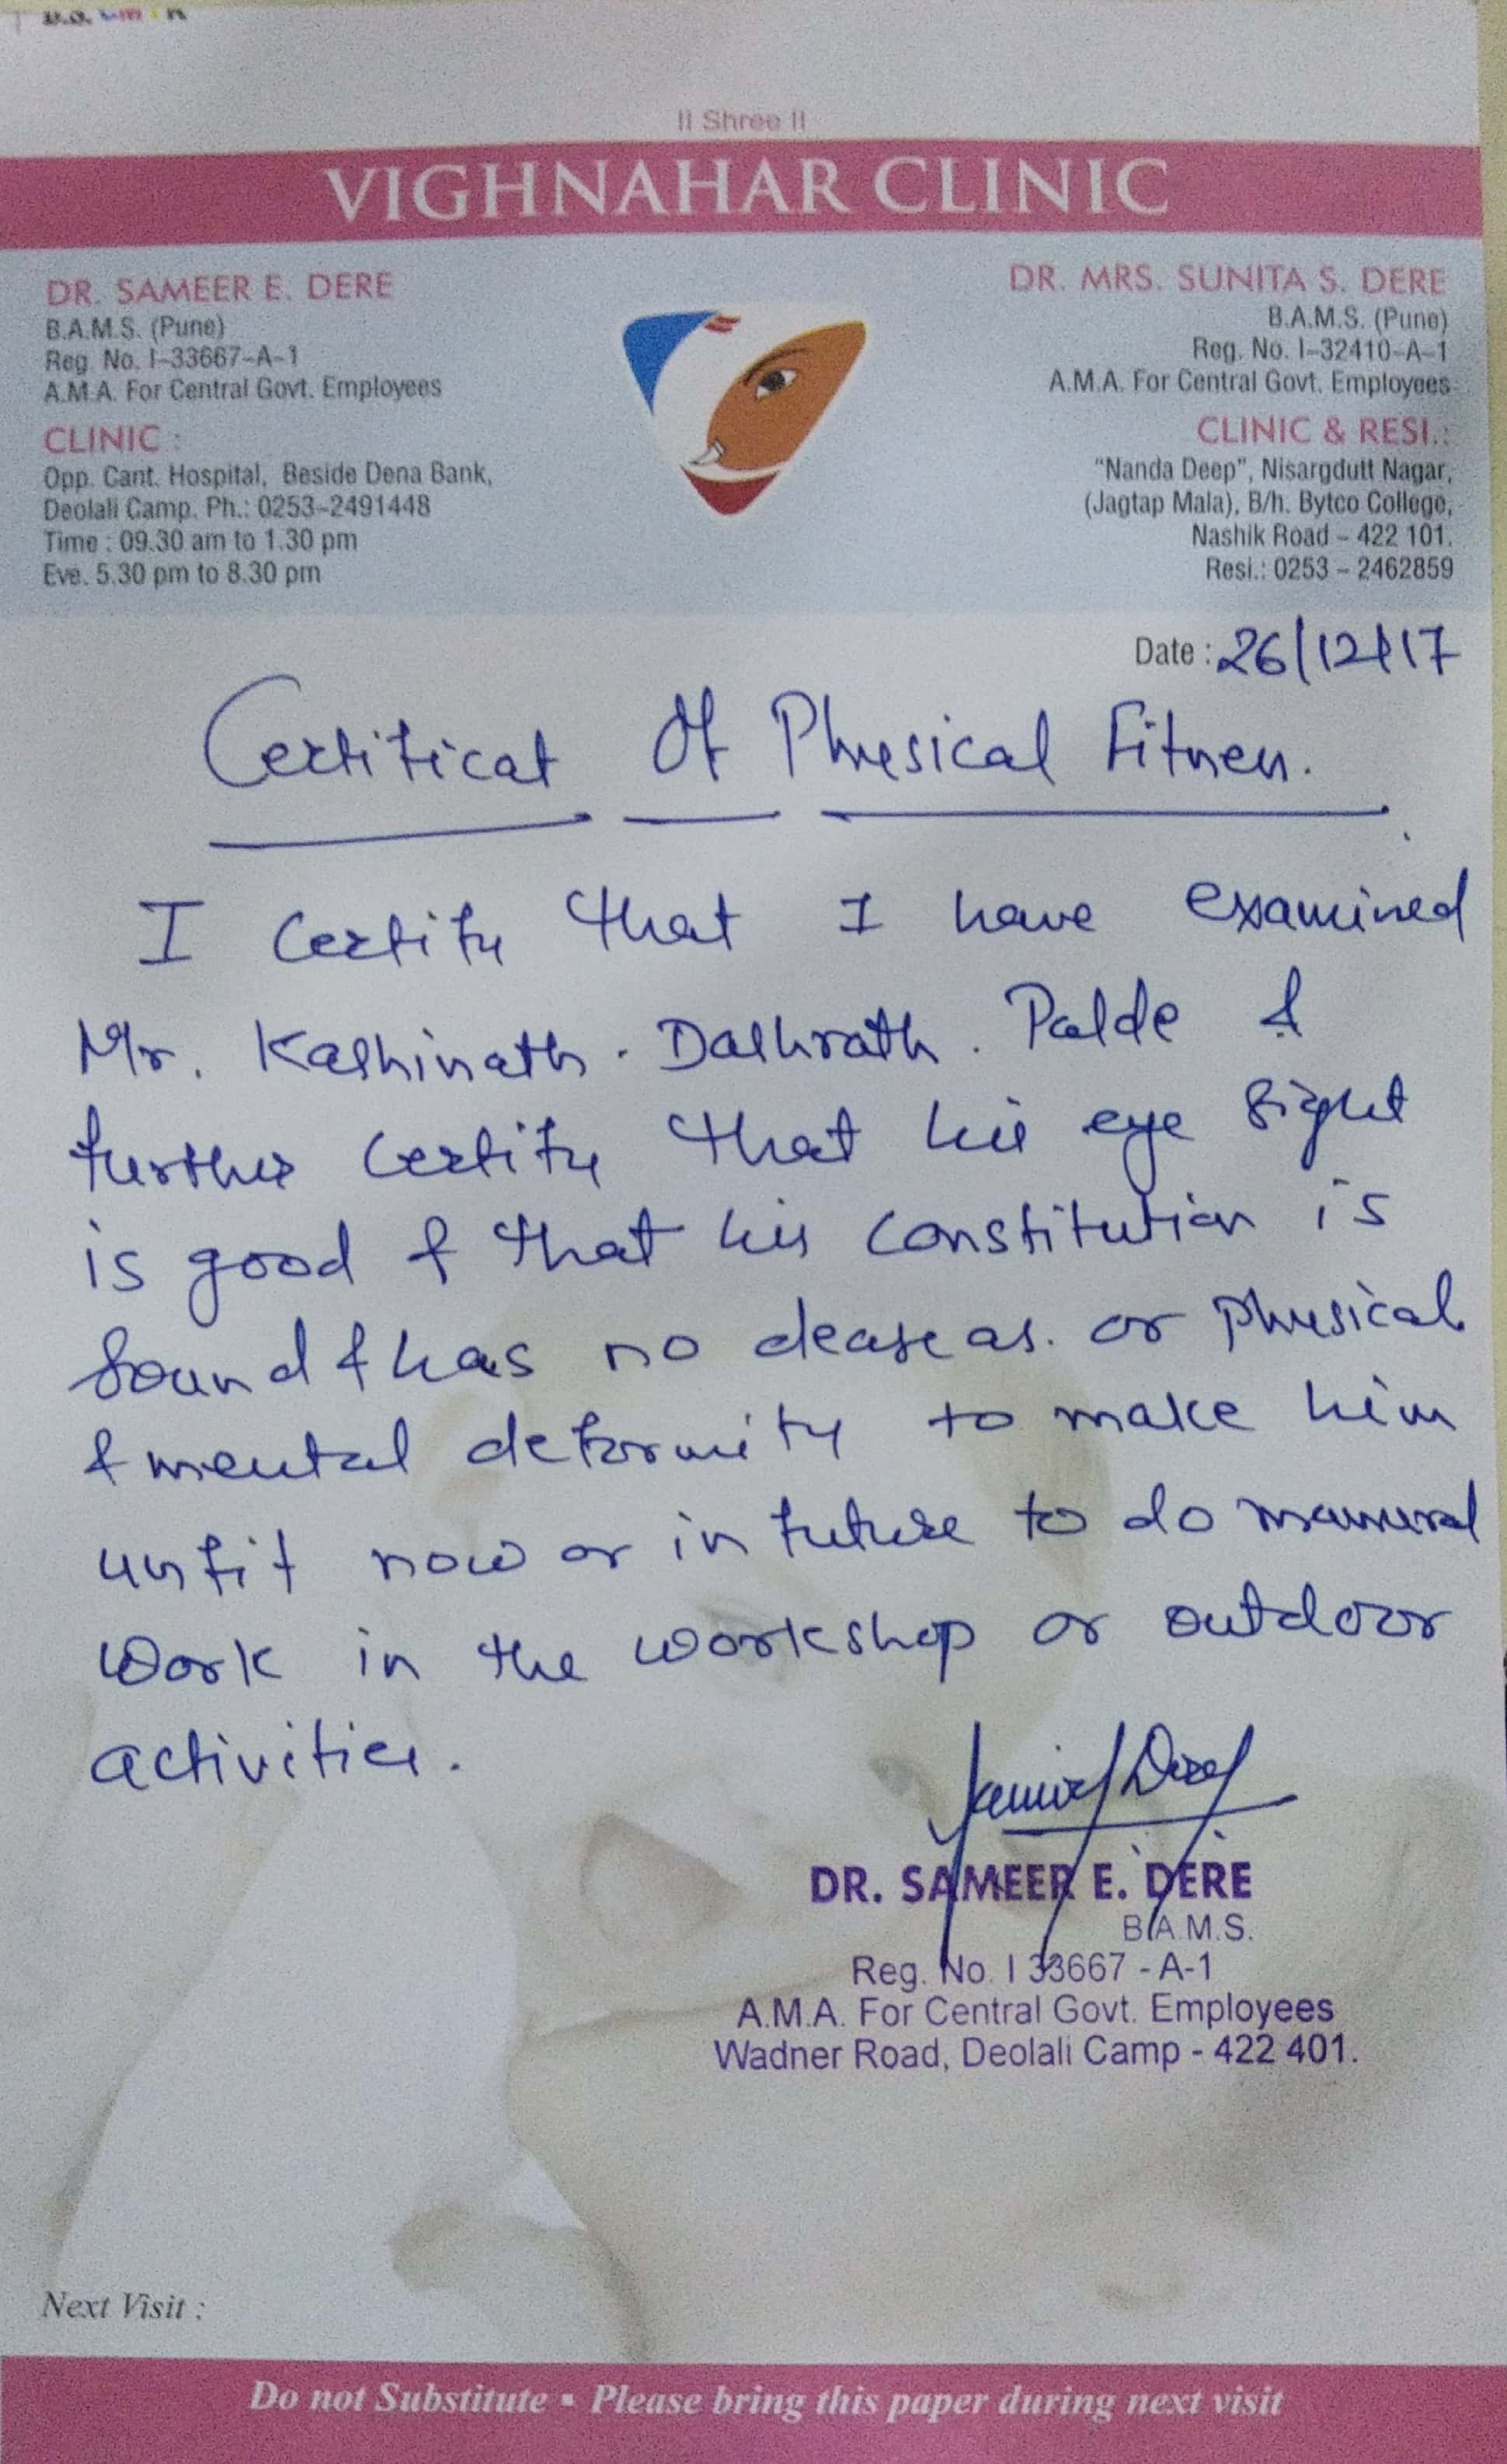 || Shree ||
VIGHNAHAR CLINIC
DR. SAMEER E. DERE
B.A.M.S. (Pune)
Reg. No. I-33667-A-1
A.M.A. For Central Govt. Employees
CLINIC :
Opp. Cant. Hospital, Beside Dena Bank,
Deolali Camp. Ph.: 0253-2491448
Time : 09.30 am to 1.30 pm
Eve. 5.30 pm to 8.30 pm
DR. MRS. SUNITA S. DERE
B.A.M.S. (Pune)
Reg. No. I-32410-A-1
A.M.A. For Central Govt. Employees
CLINIC & RESI.:
"Nanda Deep", Nisargdutt Nagar,
(Jagtap Mala), B/h. Bytco College,
Nashik Road - 422 101.
Resi.: 0253 - 2462859
Date : 26/12/17
Certificat Of Physical Fitness.
I Certify that I have examined
Mr. Kashinath. Dashrath. Palde &
further Certify that his eye sight
is good & that his constitution is
sound & has no deaseas. or physical
& mental deformity to make him
unfit now or in future to do manural
work in the workshop or outdoor
activities.
DR. SAMEER E. DERE
B.A.M.S.
Reg. No. I 33667 - A-1
A.M.A. For Central Govt. Employees
Wadner Road, Deolali Camp - 422 401.
Next Visit :
Do not Substitute ▪ Please bring this paper during next visit